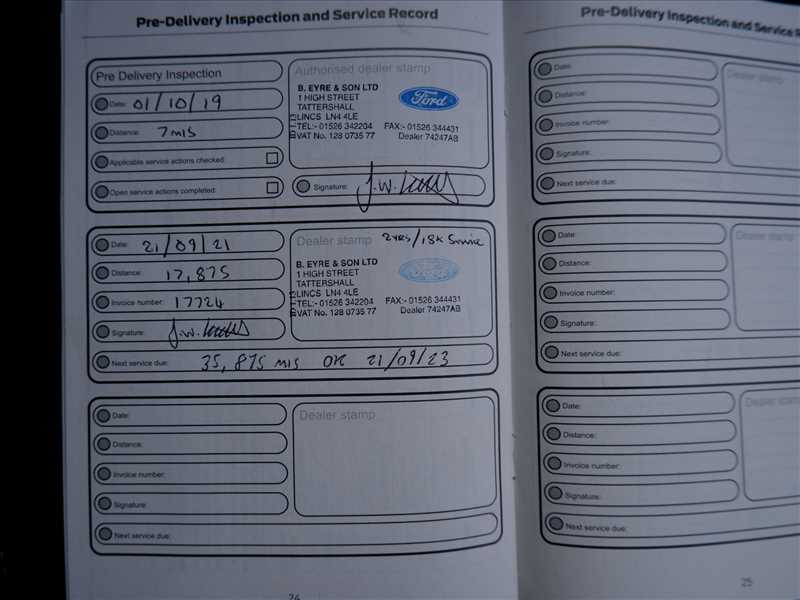 Pre-Delivery Inspection and Service Record
Pre Delivery Inspection
Date: 01/10/19
Distance: 7 mls
Applicable service actions checked:
Open service actions completed:
Authorised dealer stamp
B. EYRE & SON LTD
1 HIGH STREET
TATTERSHALL
LINCS LN4 4LE
TEL:- 01526 342204 FAX:- 01526 344431
VAT No. 128 0735 77 Dealer 74247AB
Ford
Signature:
Date: 21/09/21
Distance: 17,875
Invoice number: 17724
Signature:
Next service due: 35,875 mls OR 21/09/23
Dealer stamp 2yrs/18K Service
B. EYRE & SON LTD
1 HIGH STREET
TATTERSHALL
LINCS LN4 4LE
TEL:- 01526 342204 FAX:- 01526 344431
VAT No. 128 0735 77 Dealer 74247AB
Date:
Distance:
Invoice number:
Signature:
Next service due:
Dealer stamp
Pre-Delivery Inspection and Service
Date:
Distance:
Invoice number:
Signature:
Next service due:
Dealer stamp
Date:
Distance:
Invoice number:
Signature:
Next service due:
Dealer stamp
Date:
Distance:
Invoice number:
Signature:
Next service due:
Dealer
25